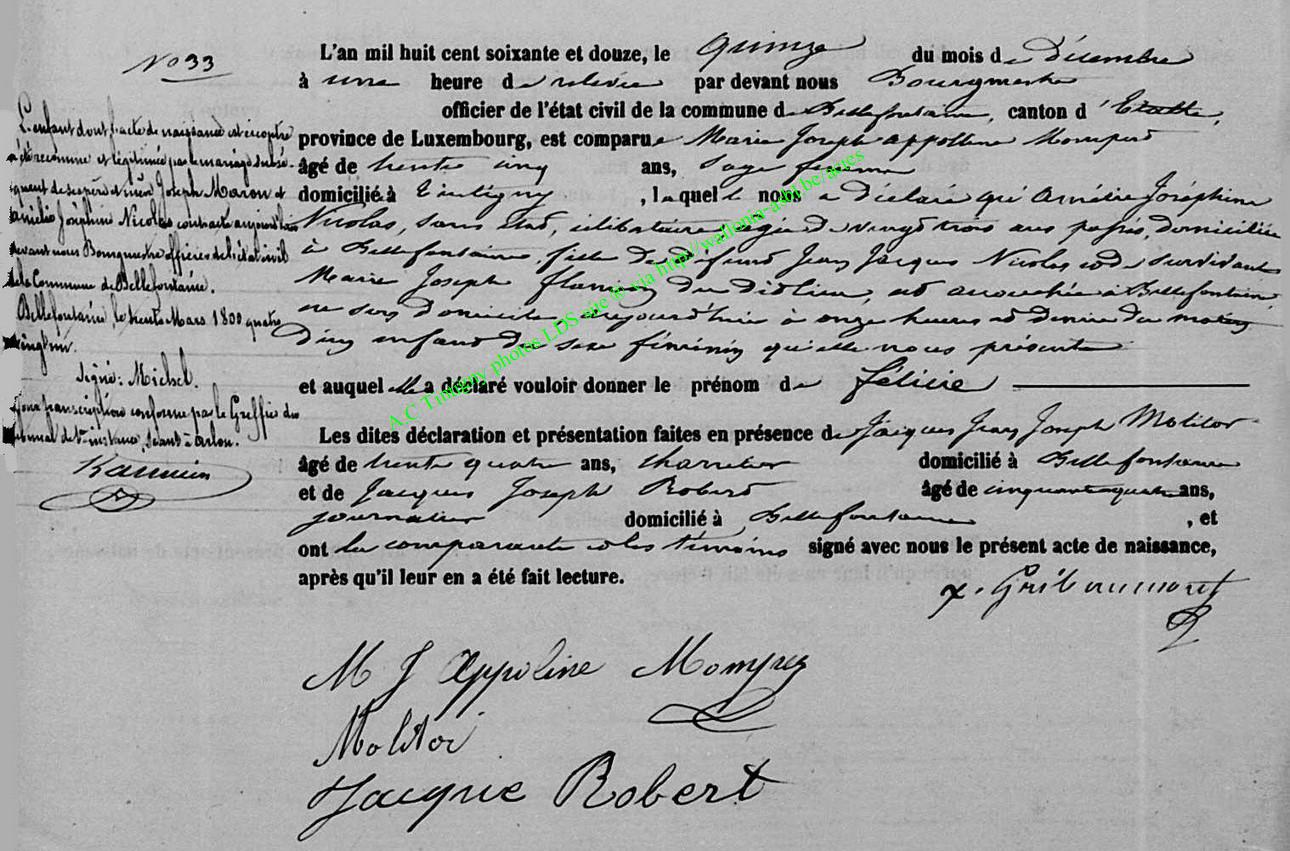 No 33
L'enfant dont l'acte de naissance est ci-contre
a été reconnue et légitimée par le mariage subsé-
quent de ses père et mère Joseph Maron et
Amélie Joséphine Nicolas contracté aujourd'hui
devant nous Bourgmestre officier de l'état civil
de la Commune de Bellefontaine.
Bellefontaine le trente Mars 1800 quatre
vingt un.
Signé: Michel.
Pour transcription conforme par le Greffier du
tribunal de 1re instance, séant à Arlon.
L'an mil huit cent soixante et douze, le quinze du mois de Décembre
à une heure de relevée par devant nous Bourgmestre
officier de l'état civil de la commune de Bellefontaine, canton d'Etalle,
province de Luxembourg, est comparue Marie Joseph Appolline
âgé de trente cinq ans, Sage femme
domicilié à Tintigny, laquelle nous a déclaré qu'Amélie Joséphine
Nicolas, sans état, célibataire âgée de vingt trois ans passés, domiciliée
à Bellefontaine, fille de défunt Jean Jacques Nicolas et de survivante
Marie Joseph du dit lieu, est accouchée à Bellefontaine
en son domicile aujourd'hui à onze heures et demie du matin
d'un enfant de sexe féminin qu'elle nous présente
et auquel elle a déclaré vouloir donner le prénom de Félicie
Les dites déclaration et présentation faites en présence de Jacques Jean Joseph Molitor
âgé de trente quatre ans, charretier domicilié à Bellefontaine
et de Jacques Joseph Robert âgé de cinquante quatre ans,
journalier domicilié à Bellefontaine, et
ont la comparante et les témoins signé avec nous le présent acte de naissance,
après qu'il leur en a été fait lecture.
M J Appoline Mompez
Molitor
Jacque Robert
A.C Tintigny photos LDS site © via http://wallonia-asbl.be/actes